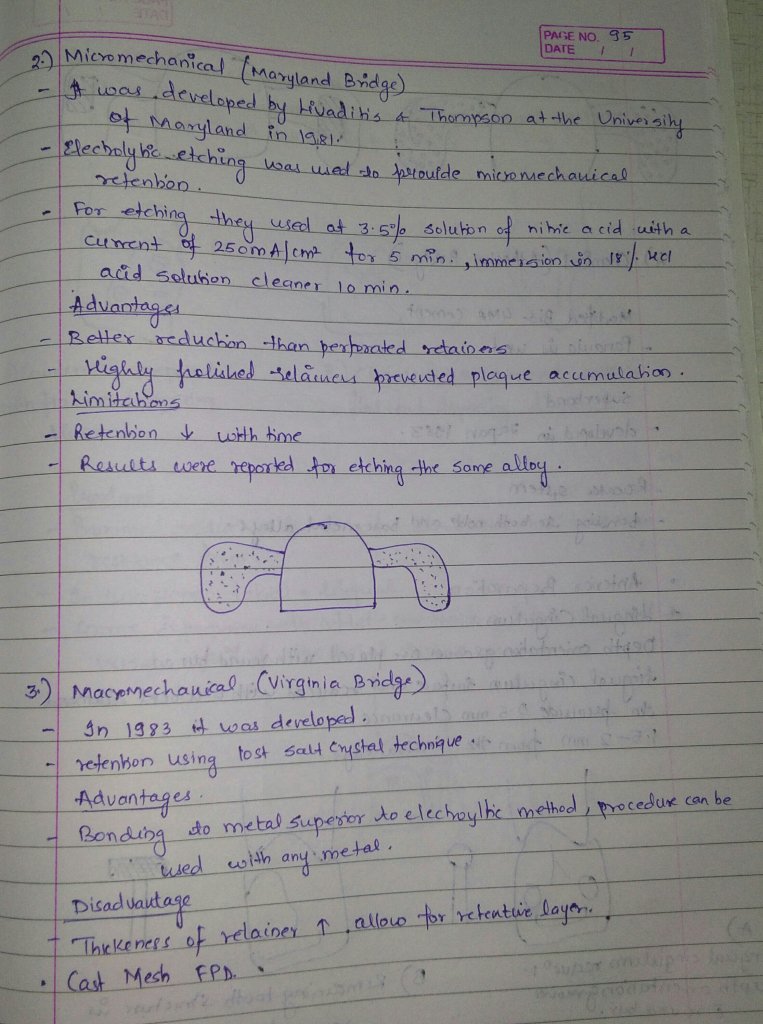 PAGE NO. 95
DATE / /
2.) Micromechanical (Maryland Bridge)
- It was developed by Livaditis & Thompson at the University
of Maryland in 1981.
- Electrolytic etching was used to provide micromechanical
retention.
- For etching they used at 3.5% solution of nitric acid with a
current of 250mA/cm² for 5 min., immersion in 18% Hcl
acid solution cleaner 10 min.
Advantages
- Better reduction than perforated retainers
- Highly polished retainers prevented plaque accumulation.
Limitations
- Retention ↓ with time
- Results were reported for etching the same alloy.
3.) Macromechanical (Virginia Bridge)
- In 1983 it was developed.
- retention using lost salt crystal technique.
Advantages.
- Bonding to metal superior to electroylhic method, procedure can be
used with any metal.
Disadvantage
- Thickeness of retainer ↑ allow for retentive layer.
• Cast Mesh FPD.